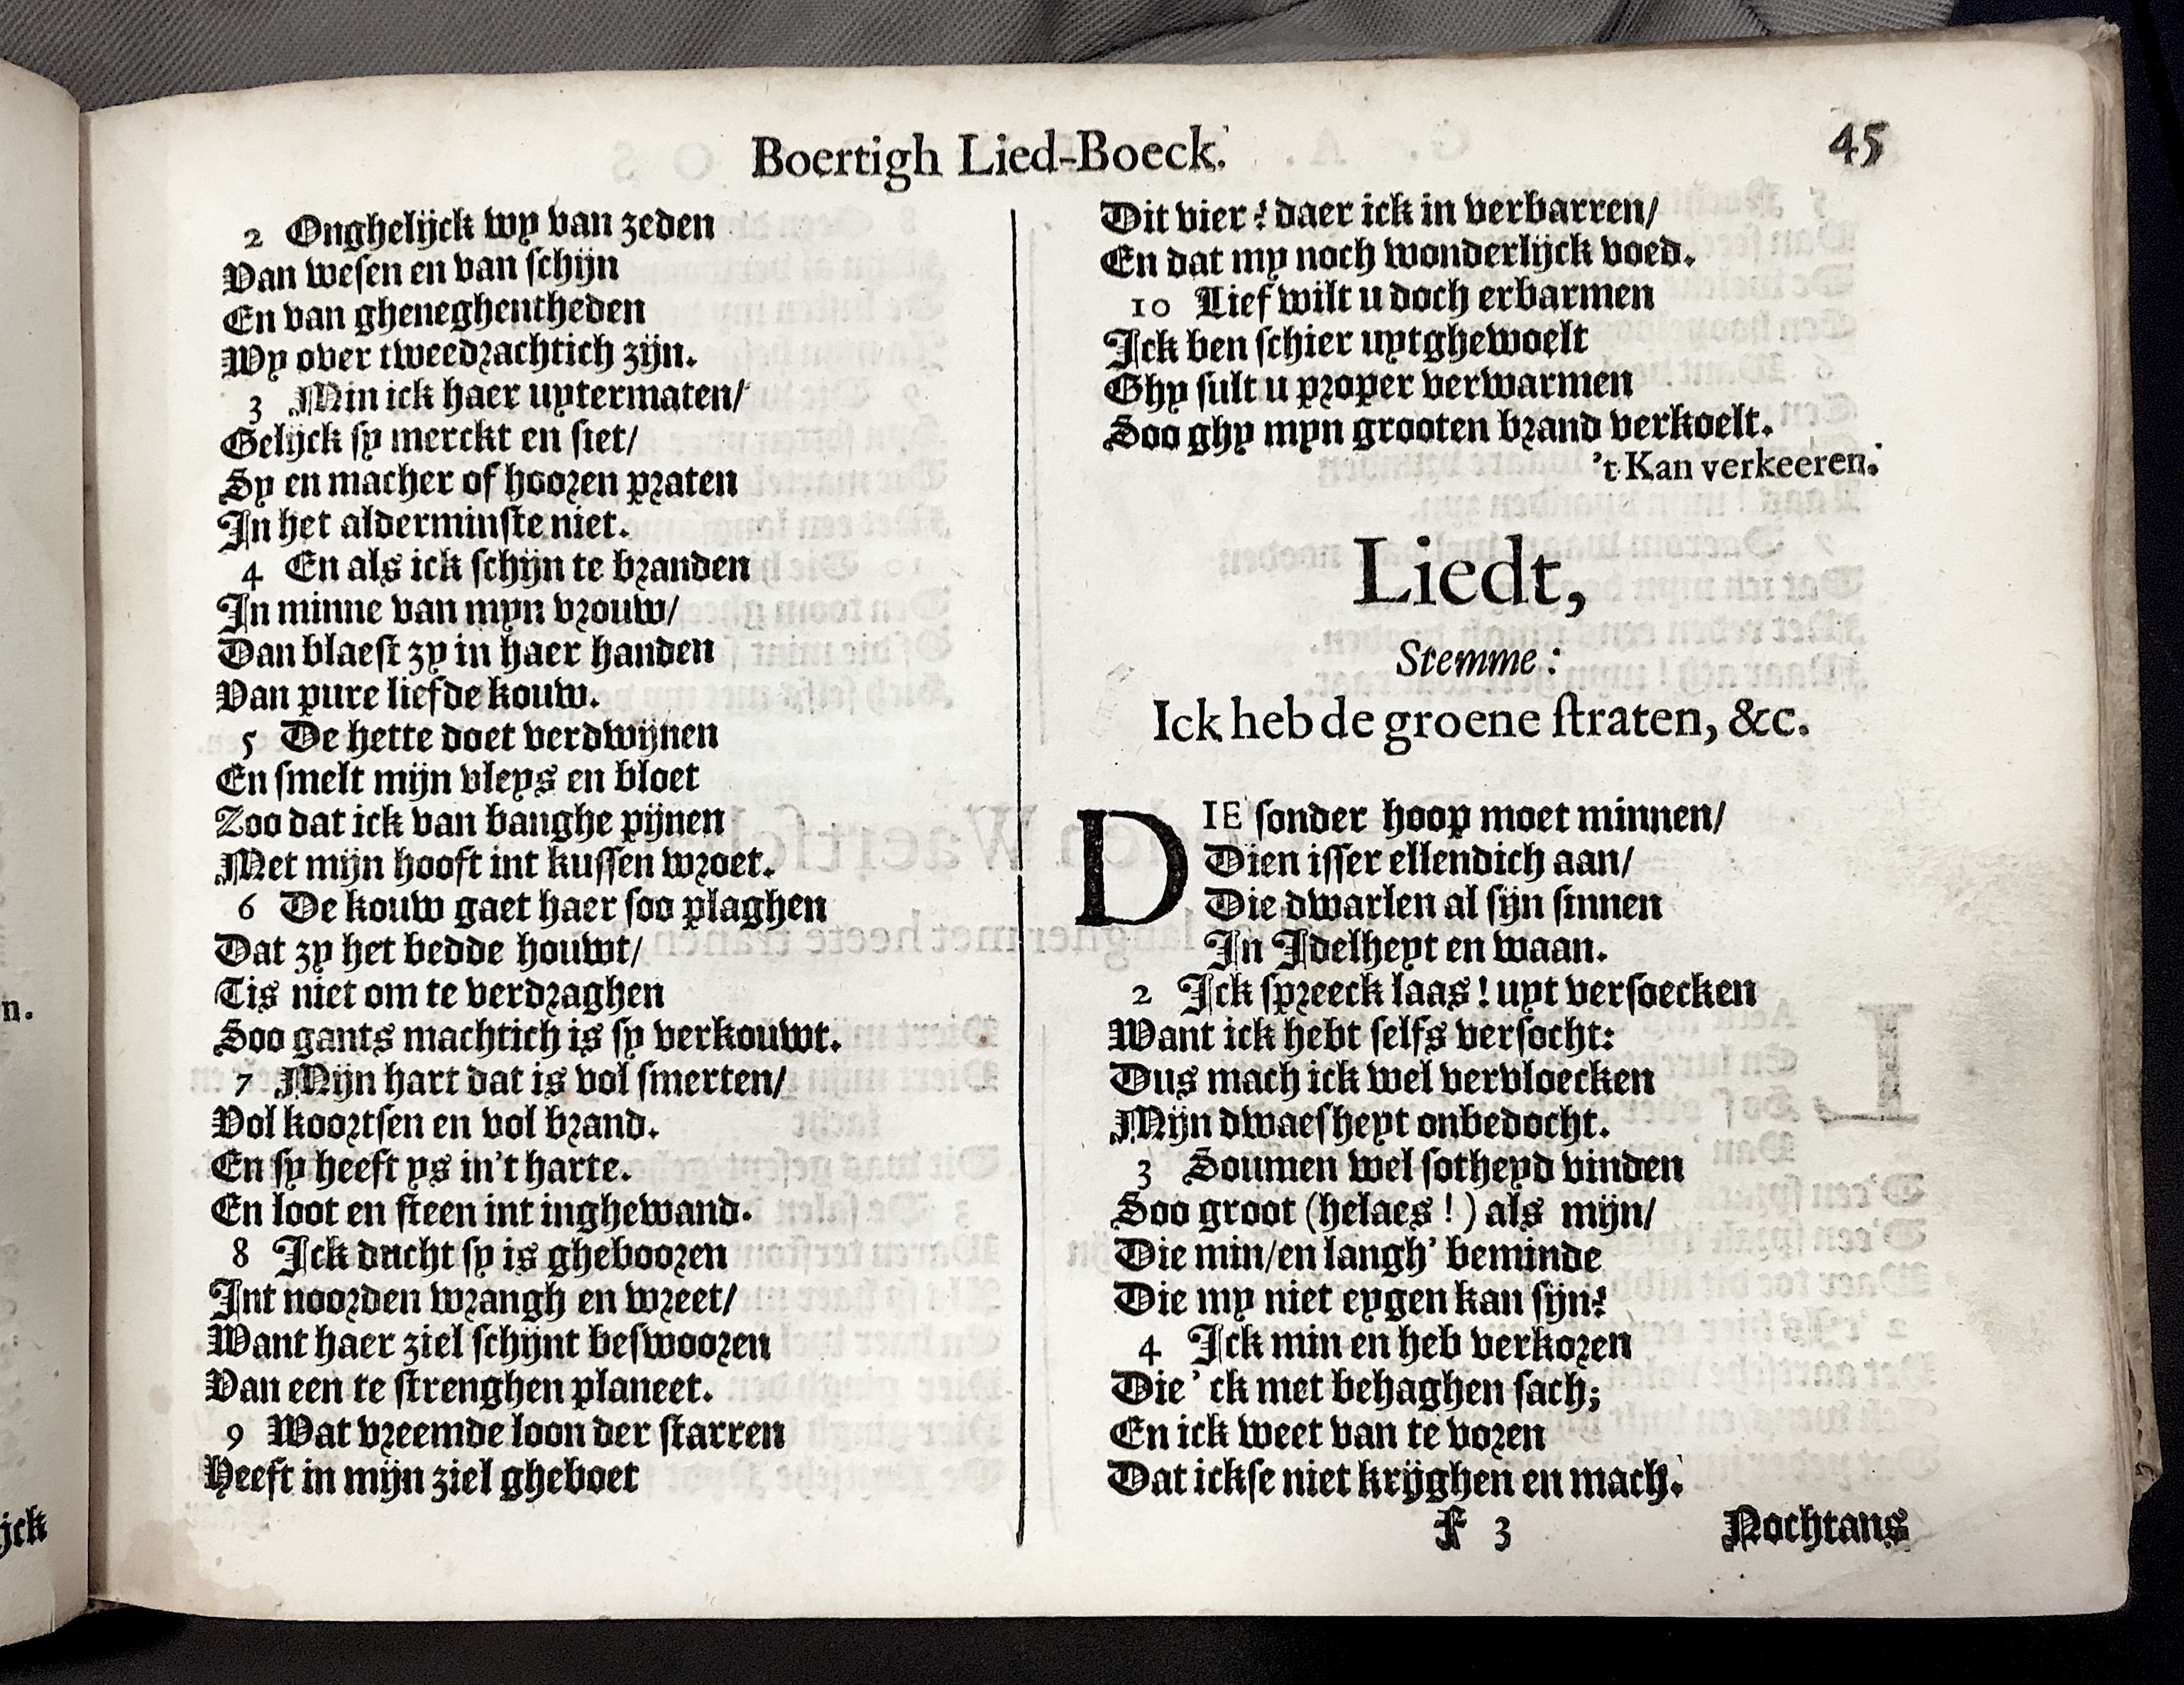 Boertigh Lied-Boeck.
45
2 Onghelijck wy van zeden
Van wesen en van schijn
En van gheneghentheden
Wy over tweedrachtich zijn.
3 Min ick haer uytermaten/
Gelijck sy merckt en siet/
Sy en macher of hooren praten
In het alderminste niet.
4 En als ick schijn te branden
In minne van myn vrouw/
Dan blaest zy in haer handen
Van pure liefde kouw.
5 De hette doet verdwijnen
En smelt mijn vleys en bloet
Zoo dat ick van banghe pijnen
Met mijn hooft int kussen wroet.
6 De kouw gaet haer soo plaghen
Dat zy het bedde houwt/
Tis niet om te verdraghen
Soo gants machtich is sy verkouwt.
7 Mijn hart dat is vol smerten/
Vol koortsen en vol brand.
En sy heeft ys in't harte.
En loot en steen int inghewand.
8 Ick ducht sy is ghebooren
Int noorden wrangh en wreet/
Want haer ziel schijnt beswooren
Van een te strenghen planeet.
9 Wat vreemde loon der starren
Heeft in mijn ziel gheboet
Dit vier? daer ick in verbarren/
En dat my noch wonderlijck voed.
10 Lief wilt u doch erbarmen
Ick ben schier uytghewoelt
Ghy sult u proper verwarmen
Soo ghy myn grooten brand verkoelt.
't Kan verkeeren.
Liedt,
Stemme:
Ick heb de groene straten, &c.
DIE sonder hoop moet minnen/
Dien isser ellendich aan/
Die dwarlen al sijn sinnen
In Idelheyt en waan.
2 Ick spreeck laas! uyt versoecken
Want ick hebt selfs versocht:
Dus mach ick wel vervloecken
Mijn dwaesheyt onbedocht.
3 Soumen wel sotheyd vinden
Soo groot (helaes!) als mijn/
Die min/en langh' beminde
Die my niet eygen kan sijn?
4 Ick min en heb verkoren
Die 'ck met behaghen sach;
En ick weet van te voren
Dat ickse niet krijghen en mach.
F 3
Nochtans
n.
jck